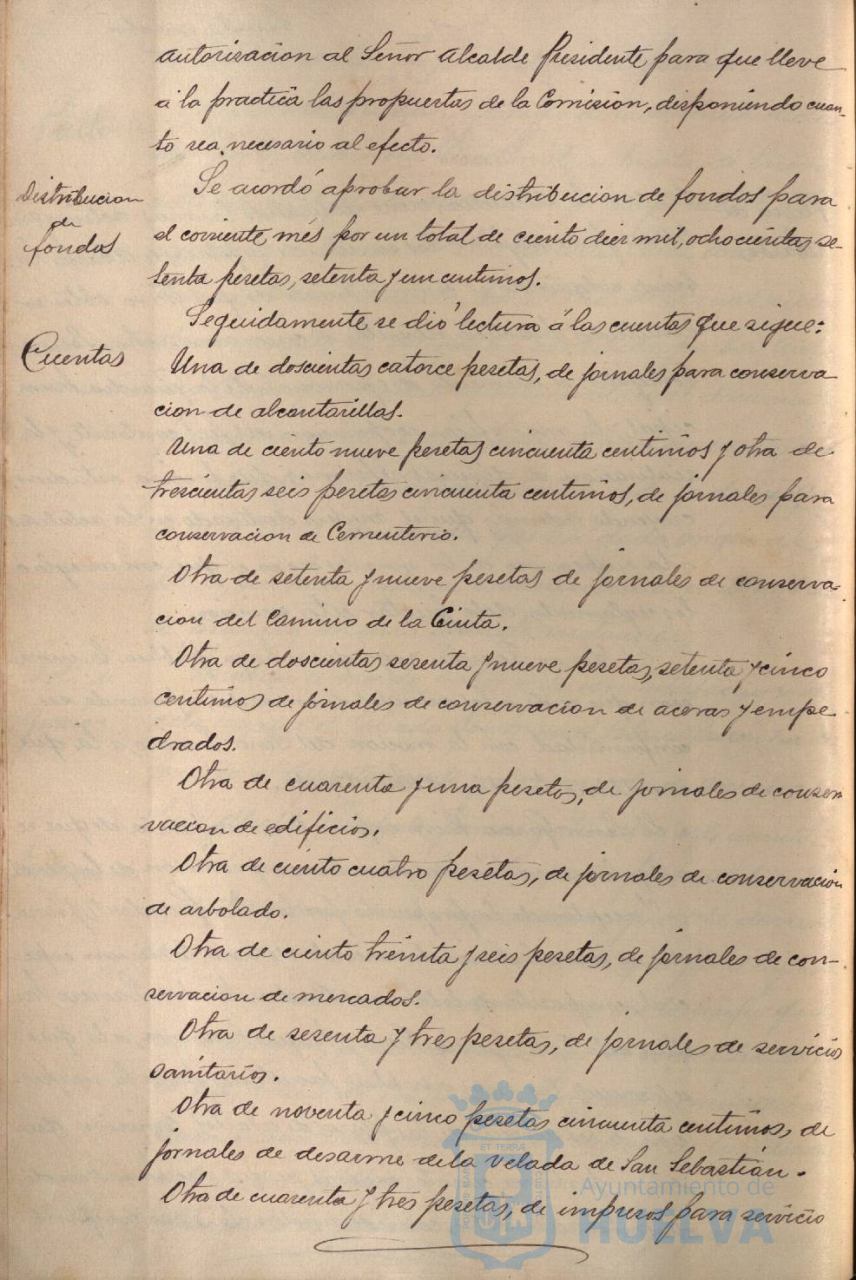 autorizacion al Señor Alcalde Presidente para que lleve
á la practica las propuestas de la Comision, disponiendo cuan-
to sea necesario al efecto.
Distribucion
de
fondos
Se acordó aprobar la distribucion de fondos para
el corriente més por un total de ciento diez mil, ochocientas se-
tenta pesetas, setenta y un centimos.
Cuentas
Seguidamente se dió lectura á las cuentas que sigue:
Una de doscientas catorce pesetas, de jornales para conserva
cion de alcantarillas.
Una de ciento nueve pesetas cincuenta centimos y otra de
trescientas seis pesetas cincuenta centimos, de jornales para
conservacion de Cementerio.
Otra de setenta y nueve pesetas de jornales de conserva-
cion del Camino de la Cinta.
Otra de doscientas sesenta y nueve pesetas, setenta y cinco
centimos de jornales de conservacion de aceras y empe
drados.
Otra de cuarenta y una pesetas, de jornales de conser
vacion de edificios.
Otra de ciento cuatro pesetas, de jornales de conservacion
de arbolado.
Otra de ciento treinta y seis pesetas, de jornales de con-
servacion de mercados.
Otra de sesenta y tres pesetas, de jornales de servicios
sanitarios.
Otra de noventa y cinco pesetas cincuenta centimos, de
jornales de desarme de la velada de San Sebastián.
Otra de cuarenta y tres pesetas, de impresos para servicio
Ayuntamiento de
HUELVA